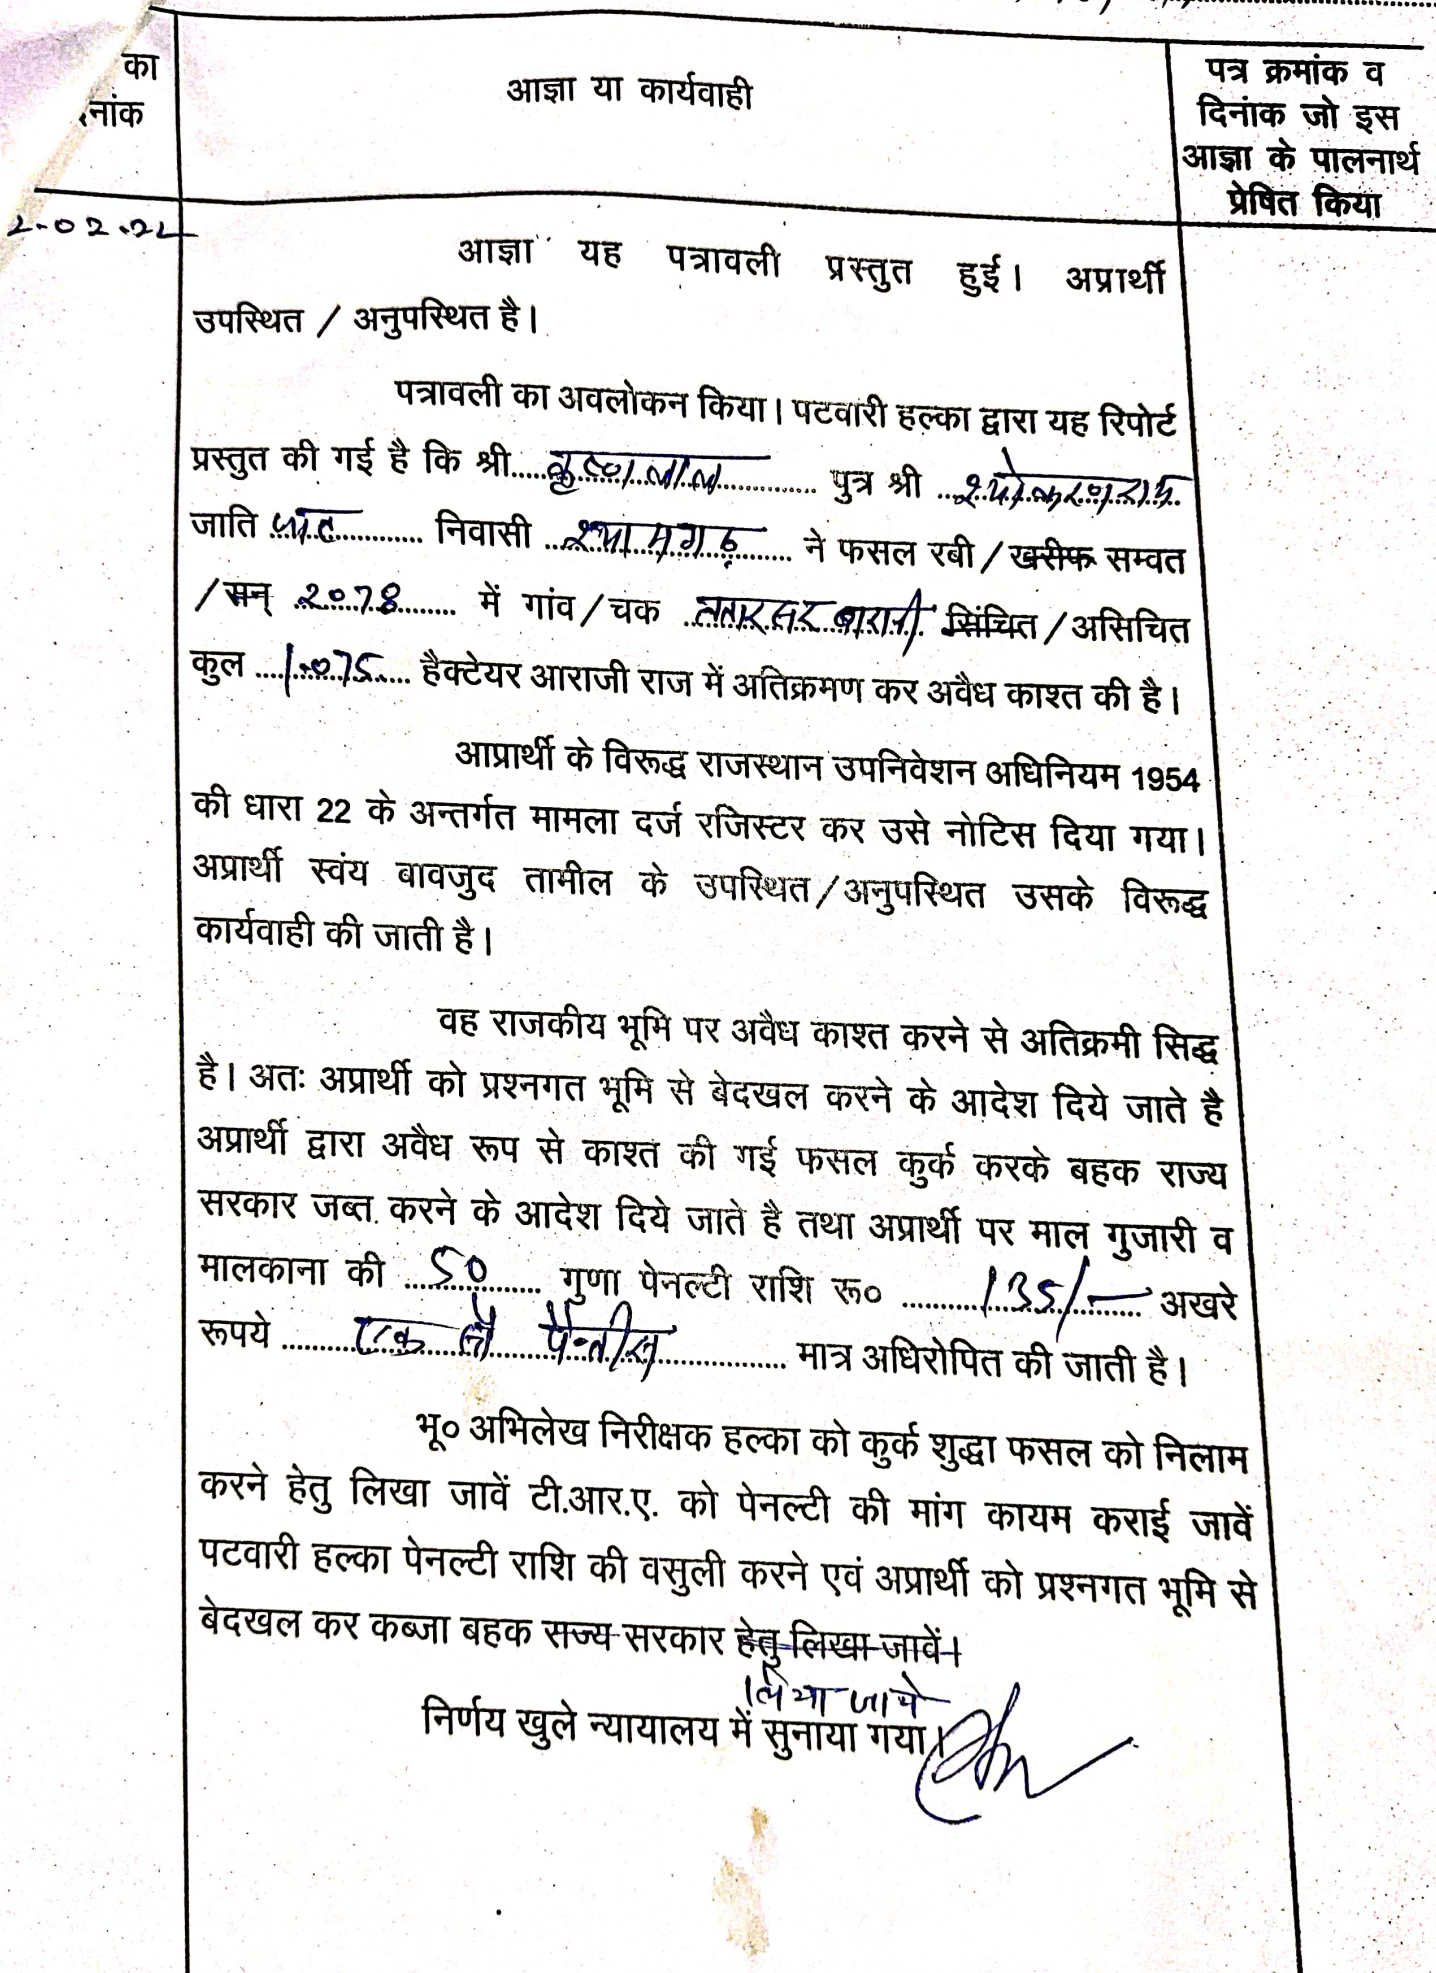 का
नांक
आज्ञा या कार्यवाही
पत्र क्रमांक व
दिनांक जो इस
आज्ञा के पालनार्थ
प्रेषित किया
2-02-22
आज्ञा यह पत्रावली प्रस्तुत हुई। अप्रार्थी
उपस्थित / अनुपस्थित है।
पत्रावली का अवलोकन किया। पटवारी हल्का द्वारा यह रिपोर्ट
प्रस्तुत की गई है कि श्री.....कृष्ण लाल............ पुत्र श्री ...श्योकरण राम
जाति जाट............ निवासी ...श्यामगढ़....... ने फसल रबी / खरीफ सम्वत
/ सन् 2078.......... में गांव / चक ..ततारसर बारानी सिंचित / असिचित
कुल ....1.075..... हैक्टेयर आराजी राज में अतिक्रमण कर अवैध काश्त की है।
आप्रार्थी के विरूद्ध राजस्थान उपनिवेशन अधिनियम 1954
की धारा 22 के अन्तर्गत मामला दर्ज रजिस्टर कर उसे नोटिस दिया गया।
अप्रार्थी स्वंय बावजुद तामील के उपस्थित / अनुपस्थित उसके विरूद्ध
कार्यवाही की जाती है।
वह राजकीय भूमि पर अवैध काश्त करने से अतिक्रमी सिद्ध
है। अतः अप्रार्थी को प्रश्नगत भूमि से बेदखल करने के आदेश दिये जाते है
अप्रार्थी द्वारा अवैध रूप से काश्त की गई फसल कुर्क करके बहक राज्य
सरकार जब्त करने के आदेश दिये जाते है तथा अप्रार्थी पर माल गुजारी व
मालकाना की ....50...... गुणा पेनल्टी राशि रू० ..........135/-...... अखरे
रूपये ........एक सौ पैन्तीस............ मात्र अधिरोपित की जाती है।
भू० अभिलेख निरीक्षक हल्का को कुर्क शुद्धा फसल को निलाम
करने हेतु लिखा जावें टी.आर.ए. को पेनल्टी की मांग कायम कराई जावें
पटवारी हल्का पेनल्टी राशि की वसुली करने एवं अप्रार्थी को प्रश्नगत भूमि से
बेदखल कर कब्जा बहक राज्य सरकार हेतु लिखा जावें।
लिया जावे
निर्णय खुले न्यायालय में सुनाया गया।